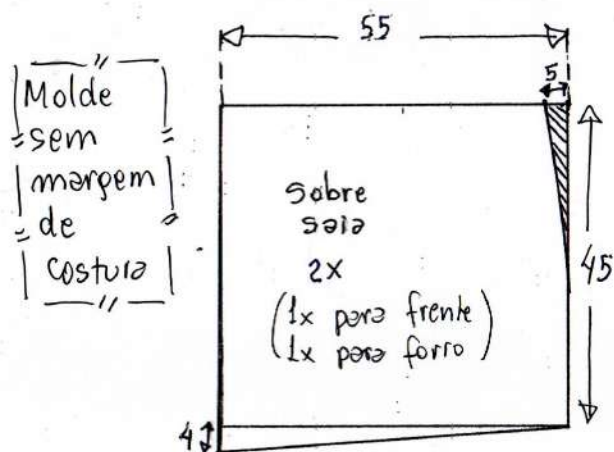 55
5
Molde
sem
margem
de
costura
sobre
saia
2x
(1x para frente
1x para forro)
45
4